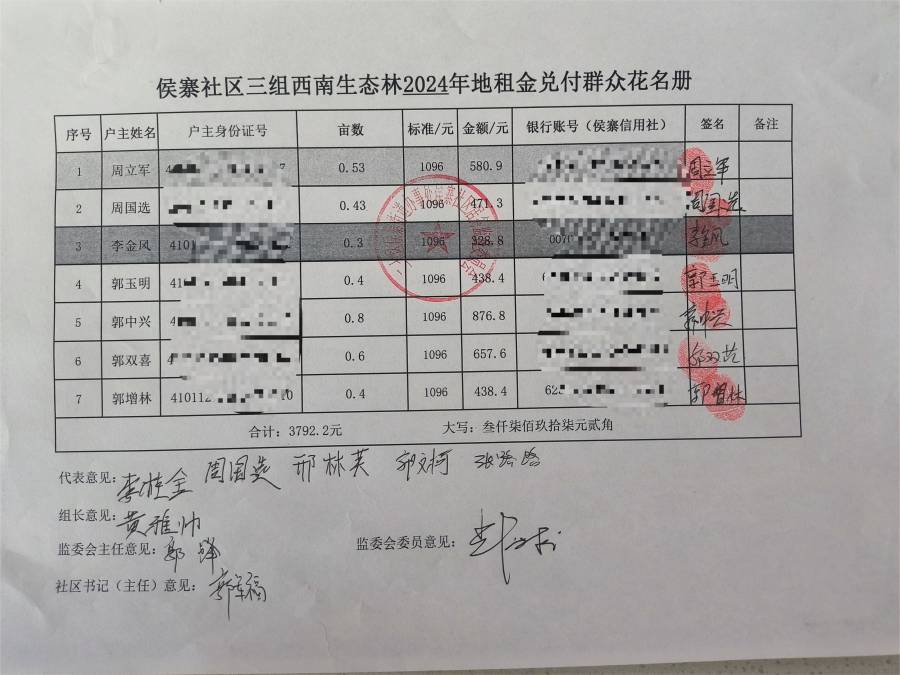 侯寨社区三组西南生态林2024年地租金兑付群众花名册
序号 户主姓名 户主身份证号 亩数 标准/元 金额/元 银行账号（侯寨信用社） 签名 备注
1 周立军 4 7 0.53 1096 580.9 周立军
2 周国选 0.43 1096 471.3 周国选
3 李金风 4101 0.3 1096 328.8 007 李金风
4 郭玉明 41 0.4 1096 438.4 郭玉明
5 郭中兴 4 0.8 1096 876.8 郭中兴
6 郭双喜 4 0.6 1096 657.6 郭双喜
7 郭增林 410112 0 0.4 1096 438.4 62 郭增林
合计：3792.2元 大写：叁仟柒佰玖拾柒元贰角
代表意见： 李桂全 周国选 邢林英
组长意见： 黄雅帅
监委会主任意见： 郭锋 监委会委员意见：
社区书记（主任）意见： 郭军福